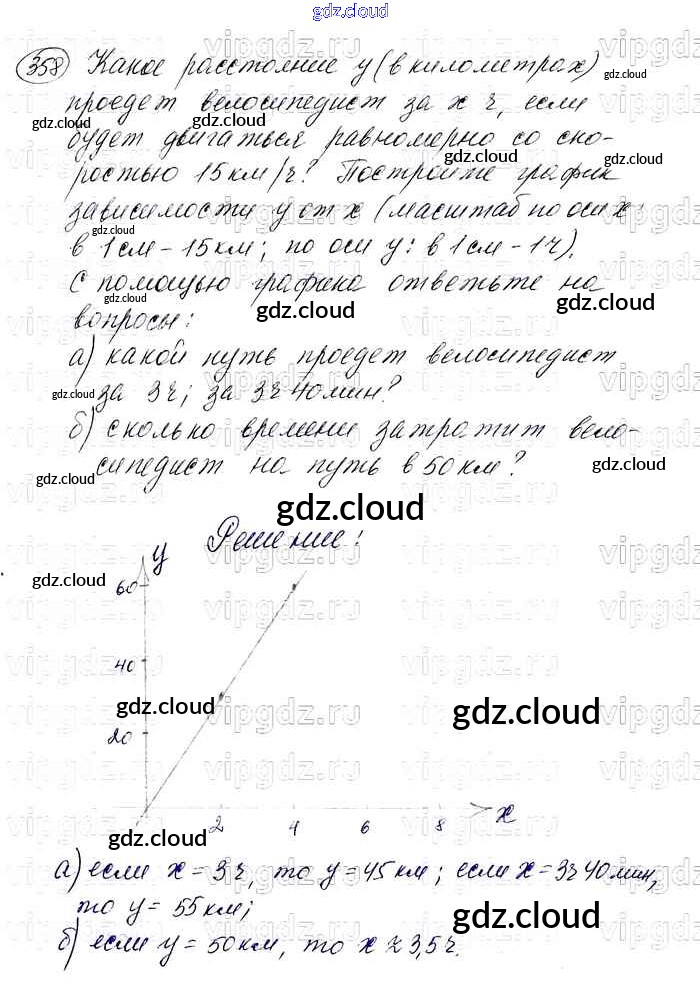 gdz.cloud
358 Какое расстояние y (в километрах)
проедет велосипедист за x ч, если
будет двигаться равномерно со ско-
ростью 15 км/ч? Постройте график
зависимости y от x (масштаб по оси x:
в 1 см - 15 км; по оси y: в 1 см - 1 ч).
С помощью графика ответьте на
вопросы:
а) какой путь проедет велосипедист
за 3 ч; за 3 ч 40 мин?
б) сколько времени затратит вело-
сипедист на путь в 50 км?
Решение:
y
60
40
20
2 4 6 8 x
а) если x = 3 ч, то y = 45 км; если x = 3 ч 40 мин,
то y = 55 км;
б) если y = 50 км, то x ≈ 3,5 ч.